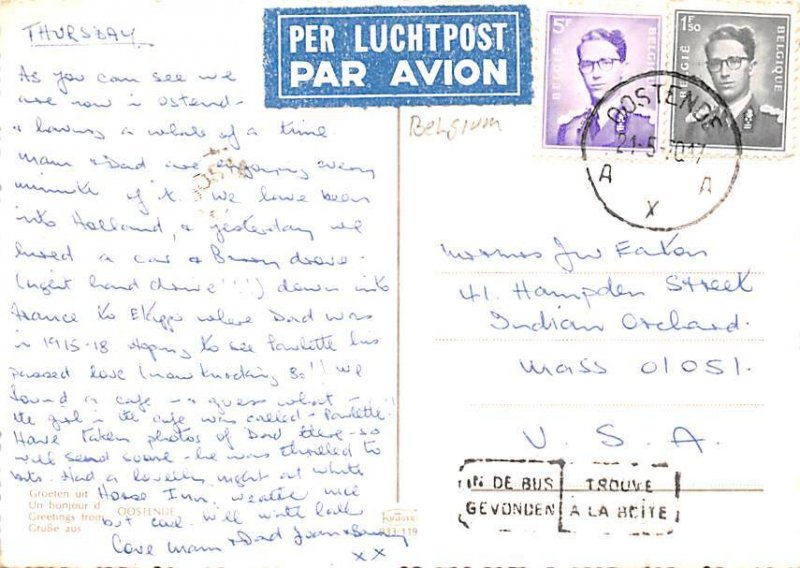 THURSDAY
As you can see we
are now in Ostend -
& having a whale of a time
mam & Dad are enjoying every
minute of it. We have been
into Holland, & yesterday we
hired a car & Barry drove -
(right hand drive!!!) down into
France to where Dad was
in 1915-18 hoping to see Paulette his
passed love (now knocking 80!! we
found a cafe - & guess what -
the girl in the cafe was called - Paulette!
Have taken photos of Dad there - so
will send some - he was thrilled to
bits. Had a lovely night out White
Horse Inn, weather nice
but cool. Will write later
Love mam & Dad Joan & Barry
x x
Groeten uit
Un bonjour d
Greetings from
Grüße aus
OOSTENDE
119
PER LUCHTPOST
PAR AVION
Belgium
5F
BELGIE
BELGIQUE
1F50
BELGIË
BELGIQUE
OOSTENDE
21-5-7017
A A
X
Mr & Mrs J W Eaton
41. Hampden Street
Indian Orchard.
Mass 01051.
U. S. A.
IN DE BUS
GEVONDEN
TROUVE
A LA BOITE